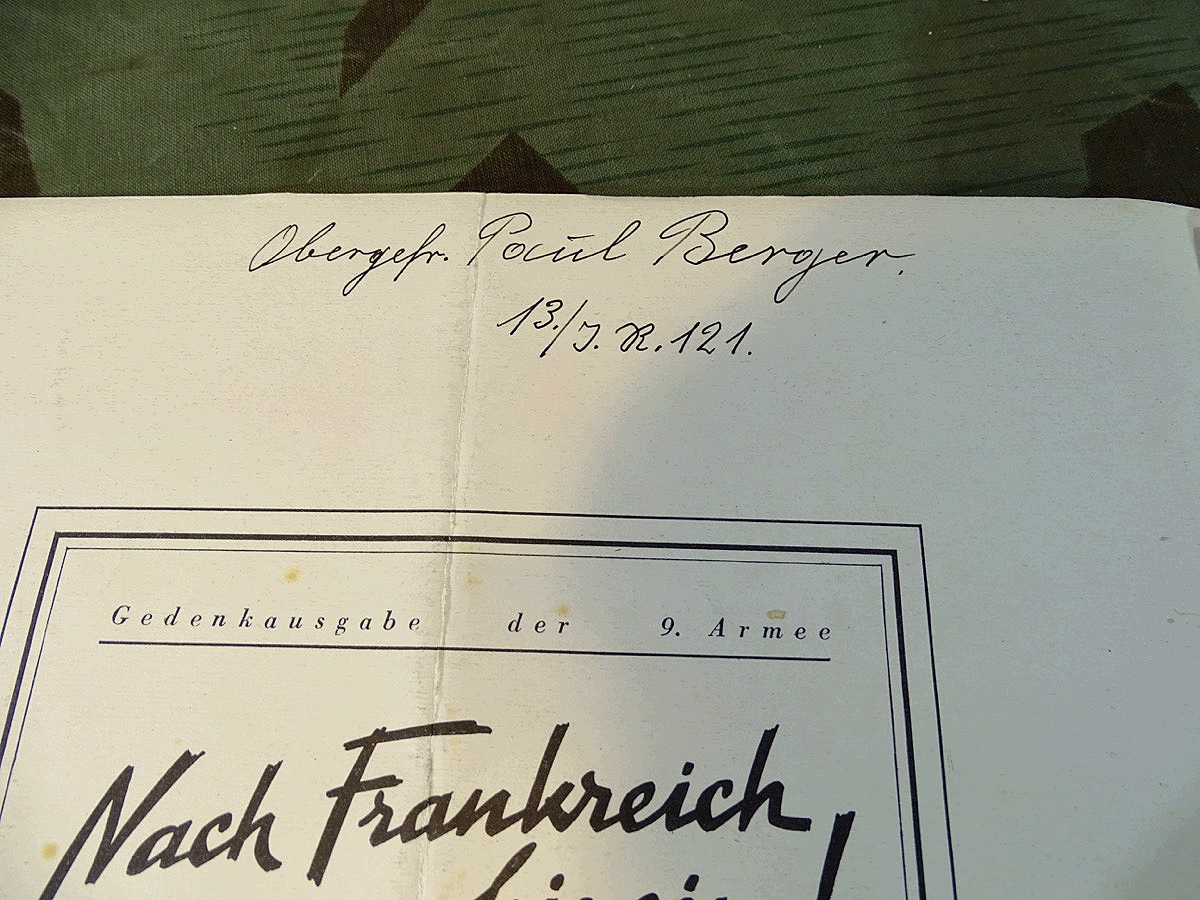 Obergefr. Paul Berger.
13./J.R.121.
Gedenkausgabe der 9. Armee
Nach Frankreich
hinein!